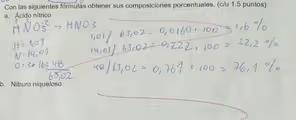 Con las siguientes fórmulas obtener sus composiciones porcentuales. (c/u 1.5 puntos)
a. Ácido nítrico
HNO3 → HNO3
1,01 / 63,02 = 0,0160 × 100 = 1,6 %
H = 1,01
14,01 / 63,02 = 0,222 . 100 = 22,2 %
N = 14,01
48 / 63,02 = 0,761 × 100 = 76,1 %
O = 3 · 16 48
63,02
b. Nitruro niqueloso